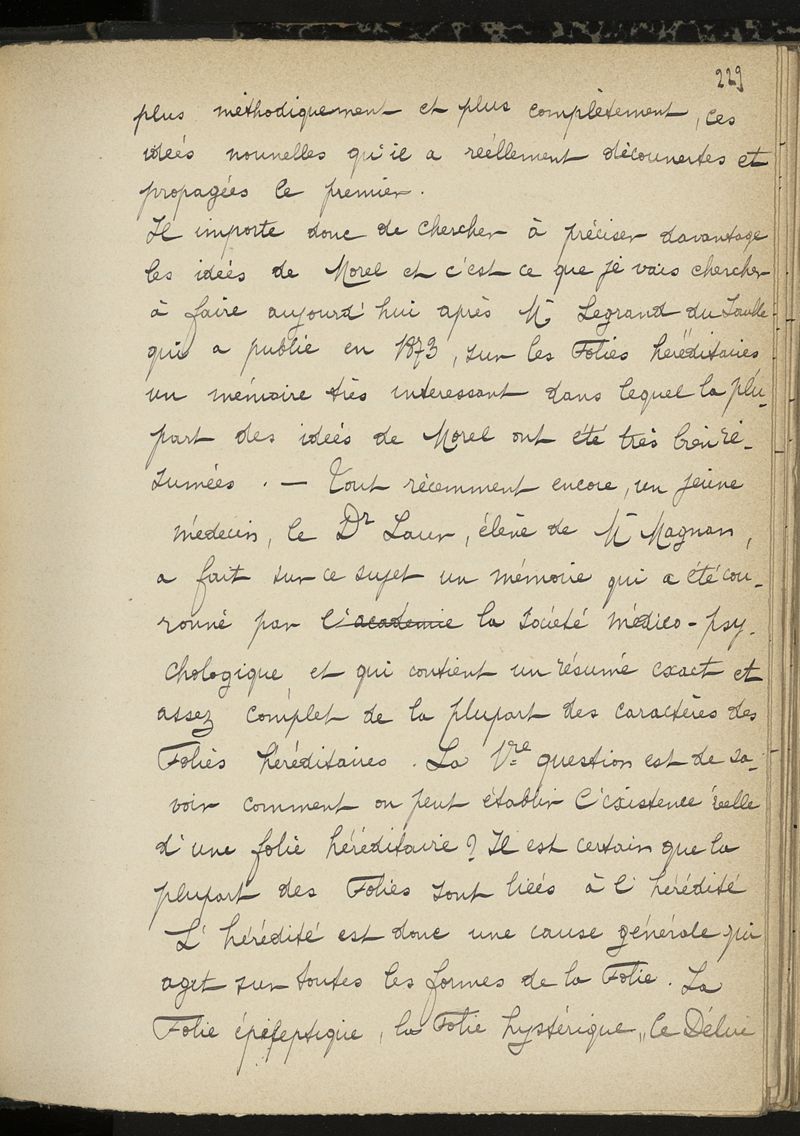 229
plus méthodiquement et plus complètement, ces
idées nouvelles qu'il a réellement découvertes et
propagées le premier.
Il importe donc de chercher à préciser davantage
les idées de Morel et c'est ce que je vais chercher
à faire aujourd'hui après Mr Legrand du Saulle
qui a publié en 1873, sur les Folies héréditaires
un mémoire très intéressant dans lequel la plu-
part des idées de Morel ont été très bien ré-
sumées. — Tout récemment encore, un jeune
médecin, le Dr Laur, élève de Mr Magnan,
a fait sur ce sujet un mémoire qui a été cou-
ronné par l'académie la société médico-psy-
chologique, et qui contient un résumé exact et
assez complet de la plupart des caractères des
Folies héréditaires. La 1re question est de sa-
voir comment on peut établir l'existence réelle
d'une folie héréditaire? Il est certain que la
plupart des Folies sont liées à l'hérédité
L'hérédité est donc une cause générale qui
agit sur toutes les formes de la Folie. La
Folie épileptique, la Folie hystérique, le Délire